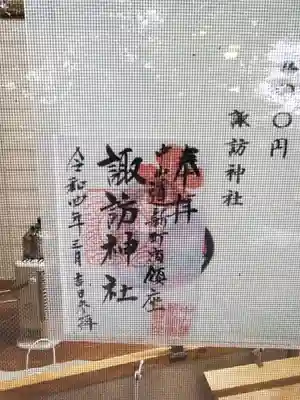 〇円
諏訪神社
奉拝
中山道新町宿鎮座
諏訪神社
令和四年三月吉日参拝